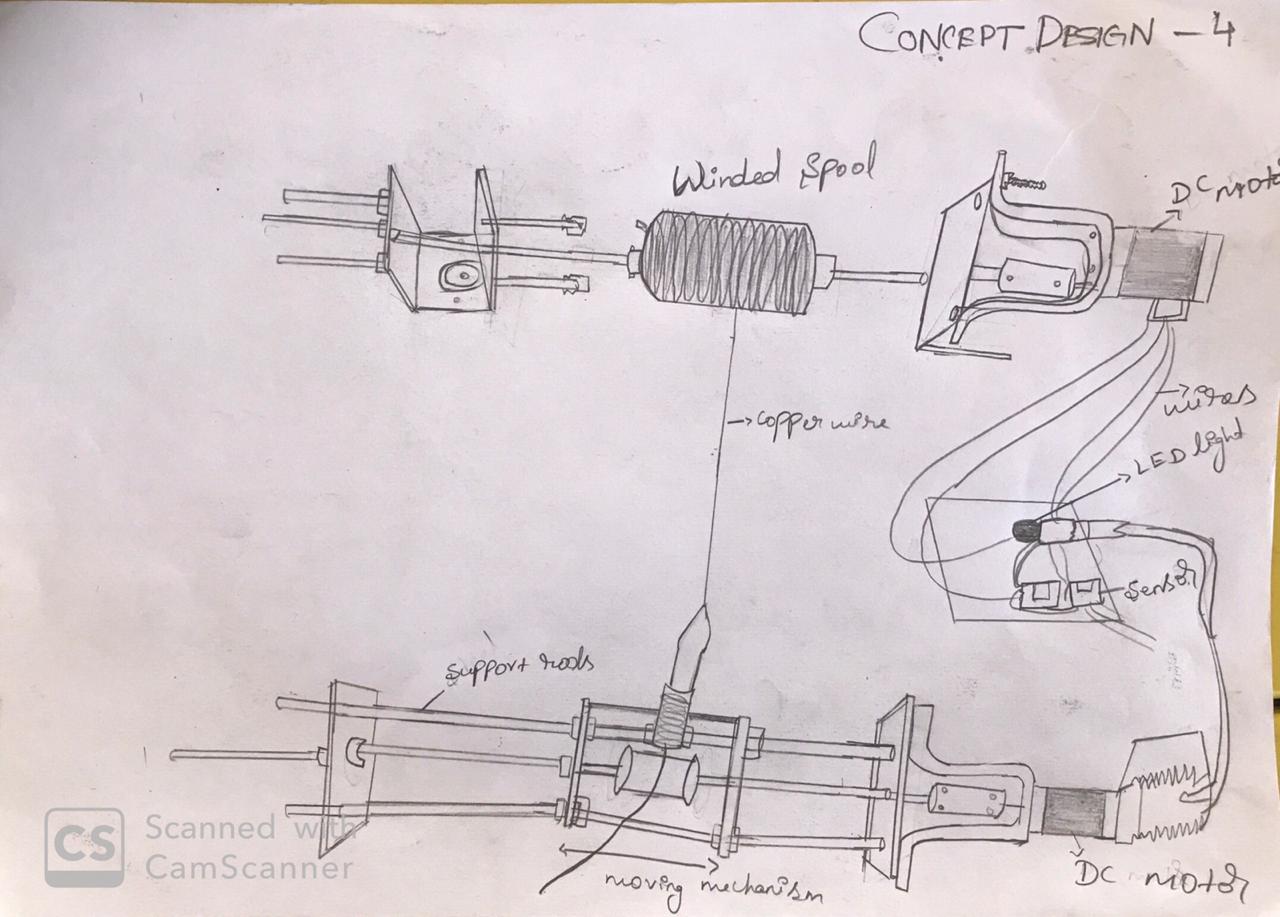 CONCEPT DESIGN - 4
Winded Spool
DC moto
→ copper wire
wires
LED light
Sensor
support rods
moving mechanism
DC motor
CS
Scanned with
CamScanner